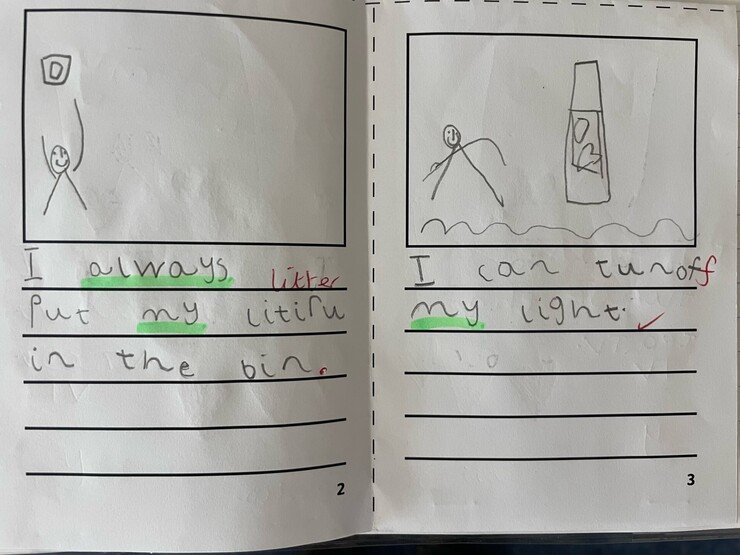 I always
litter
Put my litiru
in the bin.
2
I can turn off
my light.
3